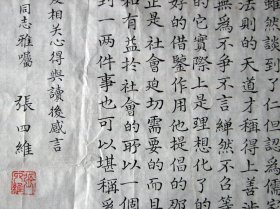 雖然談到了但認為
法則的天道才稱得上善
無為不爭不言繟然不召等
的它實際上是理想化了的
好的借鑒作用他提倡的那
正是社會迫切需要的而且
和有益於社會的所以一個
到一兩件事也可以堪稱
及相關心得與讀後感言
同志雅囑
張四維